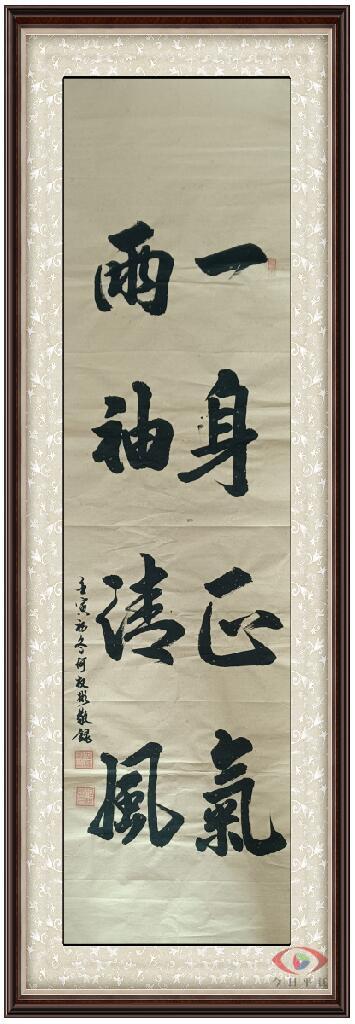 一身正氣
雨袖清風
壬寅初冬何敬錄
今日平